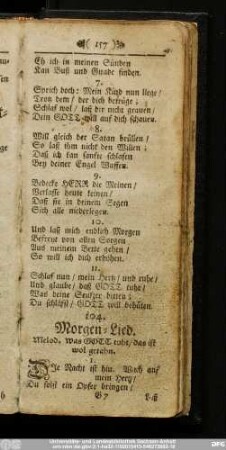 ( 157 )
Eh ich in meinen Sünden
Kan Buß und Gnade finden.
7.
Sprich doch: Mein Kind nun liege/
Trotz dem/ der dich betrüge;
Schlaf wol/ laß dir nicht grauen/
Dein GOTT will auf dich schauen.
8.
Will gleich der Satan brüllen/
So laß ihm nicht den Willen;
Daß ich kan sanfte schlafen
Bey deiner Engel Waffen.
9.
Bedecke HERR die Meinen/
Verlasse heute keinen/
Daß sie in deinem Segen
Sich alle niederlegen.
10.
Und laß mich endlich Morgen
Befreyt von allen Sorgen
Aus meinem Bette gehen/
So will ich dich erhöhen.
11.
Schlaf nun/ mein Hertz/ und ruhe/
Und glaube/ daß GOTT thue/
Was deine Seufzer bitten;
Du schläfst/ GOTT will behüten.
104.
Morgen-Lied.
Melod. Was GOTT thut/ das ist
wol gethan.
1.
Die Nacht ist hin. Wach auf
mein Hertz/
Du solst ein Opfer bringen/
G 7